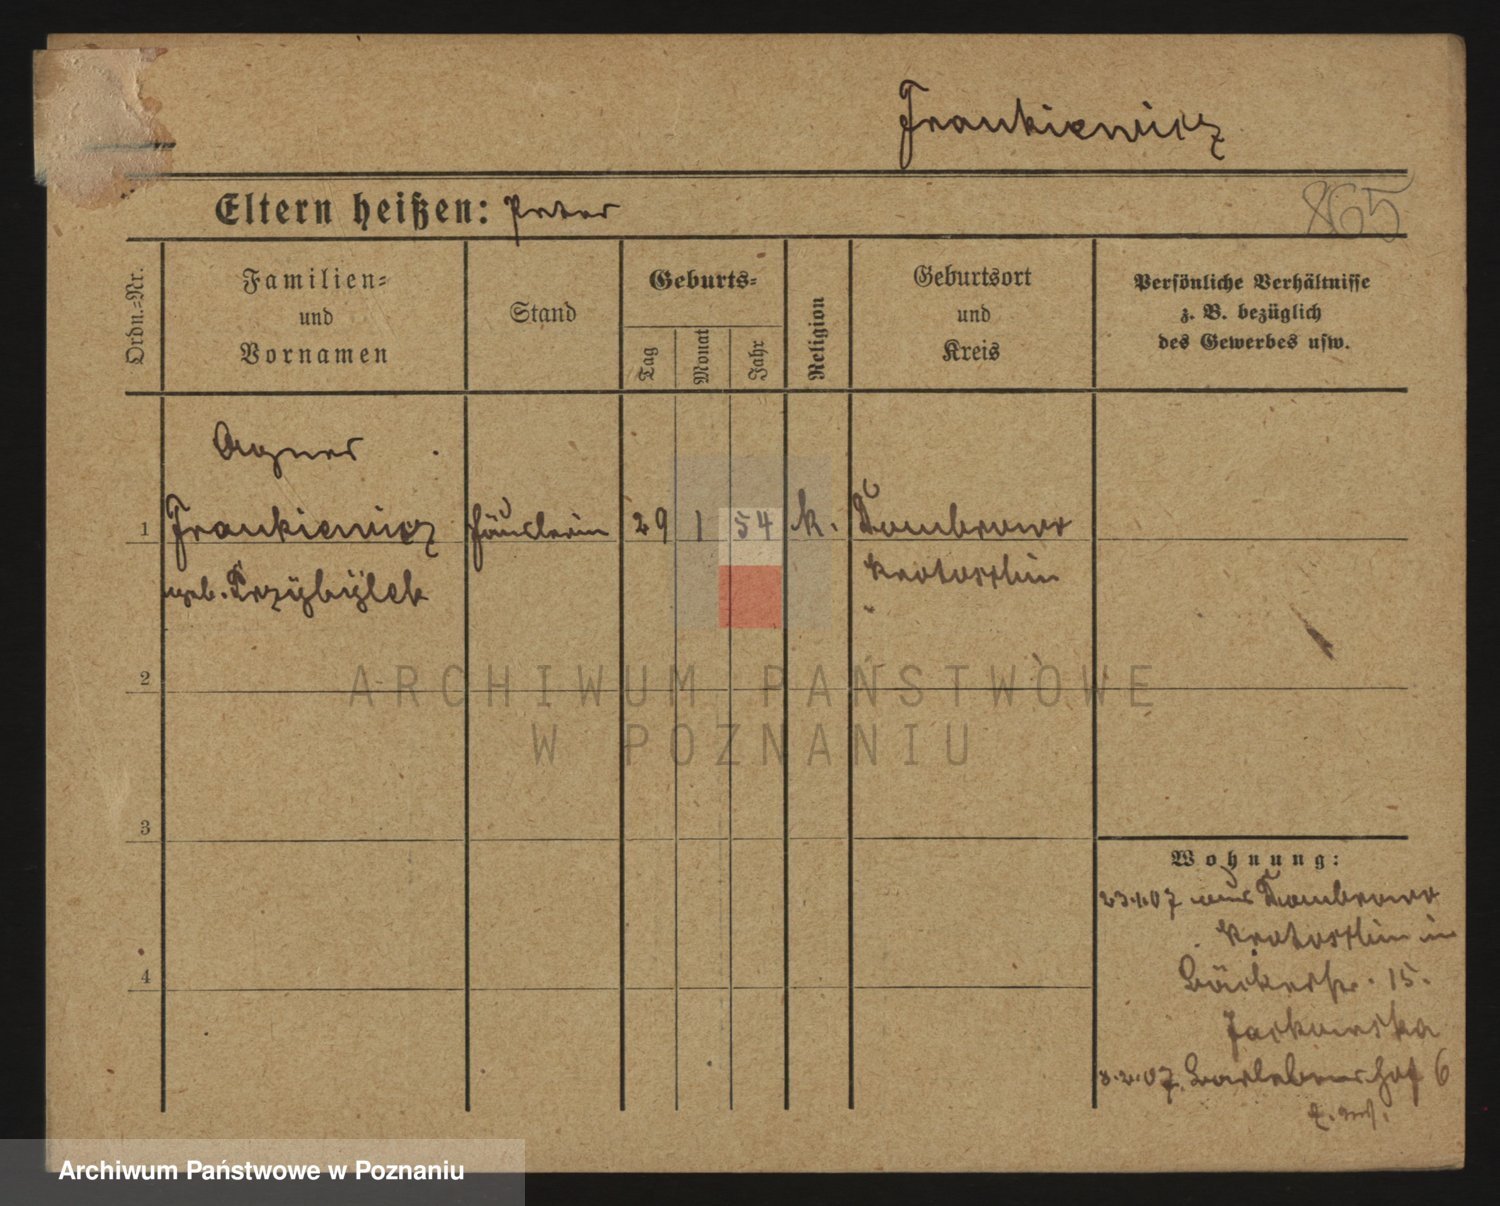 Frankiewicz
865
Eltern heißen: Peter
Ordn.-Nr.
Familien-
und
Vornamen
Stand
Geburts-
Tag
Monat
Jahr
Religion
Geburtsort
und
Kreis
Persönliche Verhältnisse
z. B. bezüglich
des Gewerbes usw.
Agnes
1 Frankiewicz Häuslerin 29 1 54 k. Dombrowo
geb. Przybylek Krotoschin
2
3
4
Wohnung:
23.1.07 aus Dombrowo
Krotoschin in
Bäckerstr. 15.
Jackowska
8.2.07. Bartlebenshof 6
ARCHIWUM PAŃSTWOWE
W POZNANIU
Archiwum Państwowe w Poznaniu